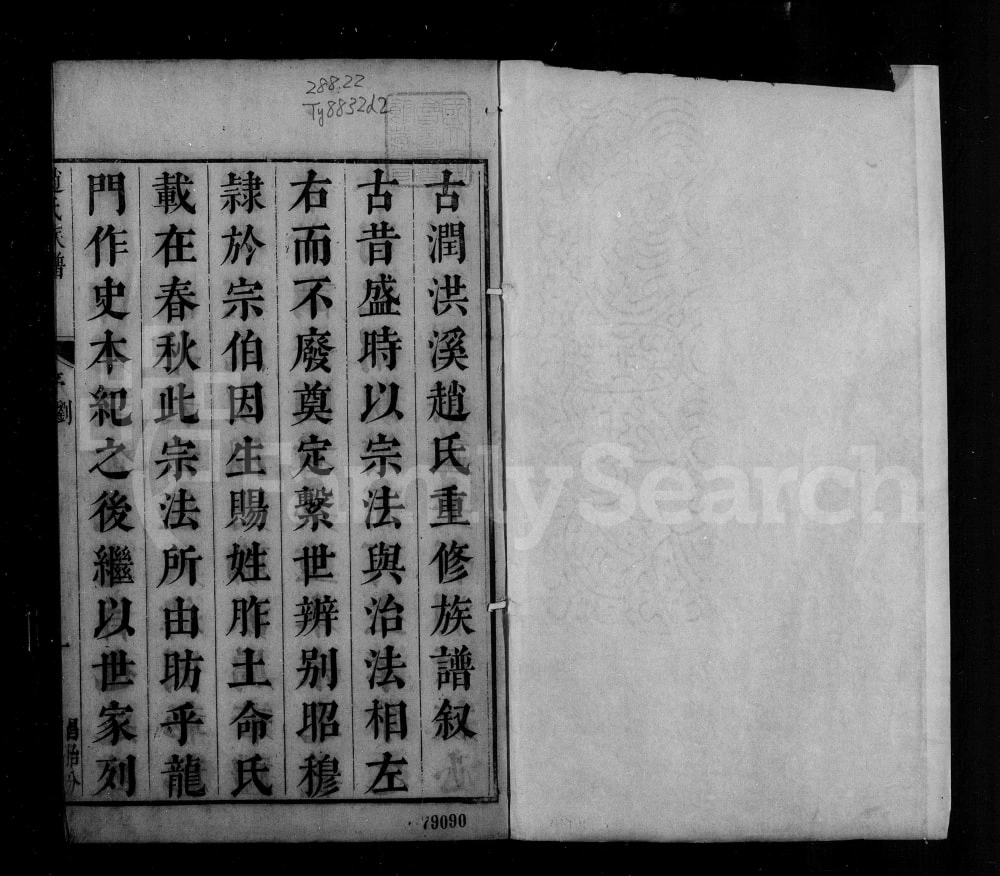 288.22
Ty8832d2
古潤洪溪趙氏重修族譜叙
古昔盛時以宗法與治法相左
右而不廢奠定繫世辨别昭穆
隷於宗伯因生賜姓胙土命氏
載在春秋此宗法所由昉乎龍
門作史本紀之後繼以世家列
趙氏族譜
序
劉
一
79090
FamilySearch